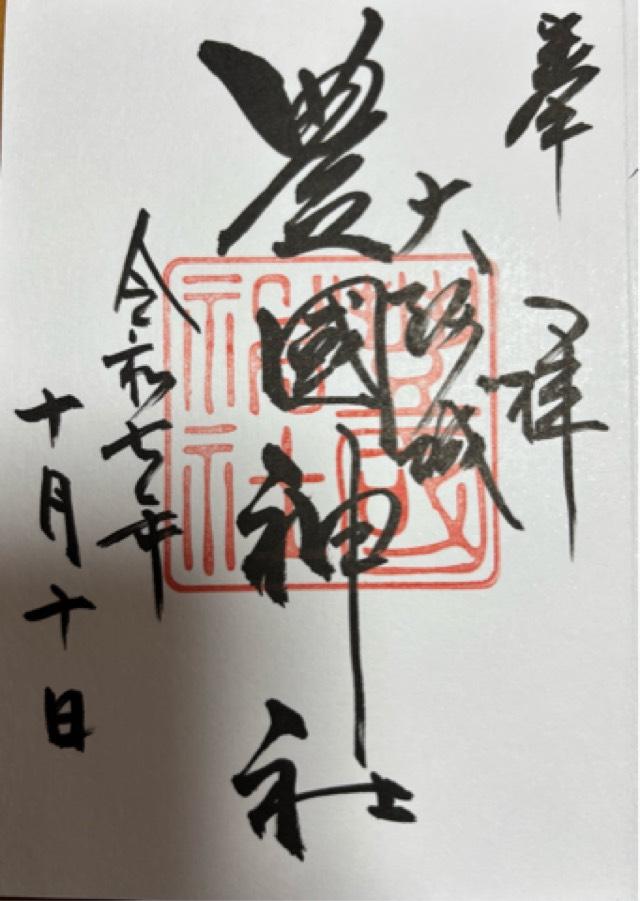 奉拝
大阪城
豊國神社
令和七年
十月十日
豊國神社